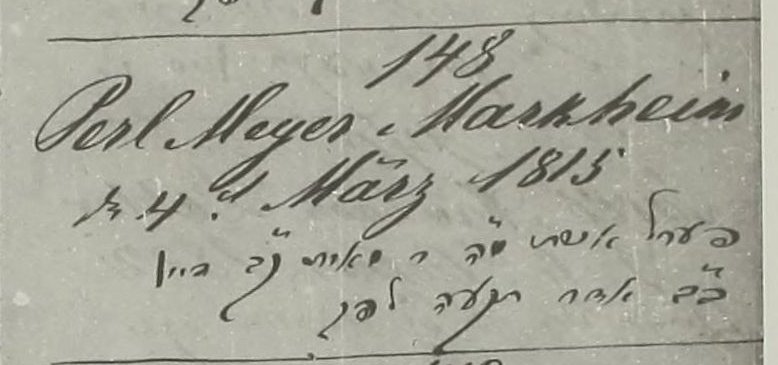 148
Perl Meyer Markheim
d 4t März 1815
פערל אשת כ"ה ר מאיר
כ"ב אדר תקעה לפק